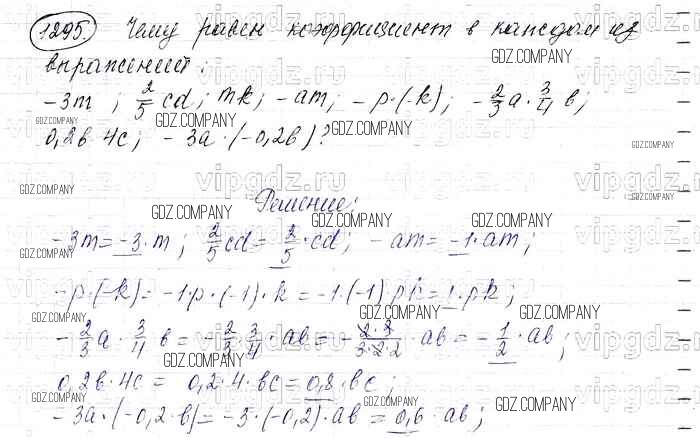 1295. Чему равен коэффициент в каждом из
выражений:
-3m; 2/5 cd; mk; -am; -p·(-k); -2/3 a · 3/4 b;
0,2b·4c; -3a·(-0,2b)?
Решение:
-3m = -3·m; 2/5 cd = 2/5 · cd; -am = -1·am;
-p·(-k) = -1·p·(-1)·k = -1·(-1) pk = 1·pk;
-2/3 a · 3/4 b = -2/3 · 3/4 · ab = - 2·3/3·2·2 · ab = -1/2 · ab;
0,2b·4c = 0,2·4·bc = 0,8·bc;
-3a·(-0,2·b) = -3·(-0,2)·ab = 0,6·ab;
GDZ.COMPANY
vipgdz.ru